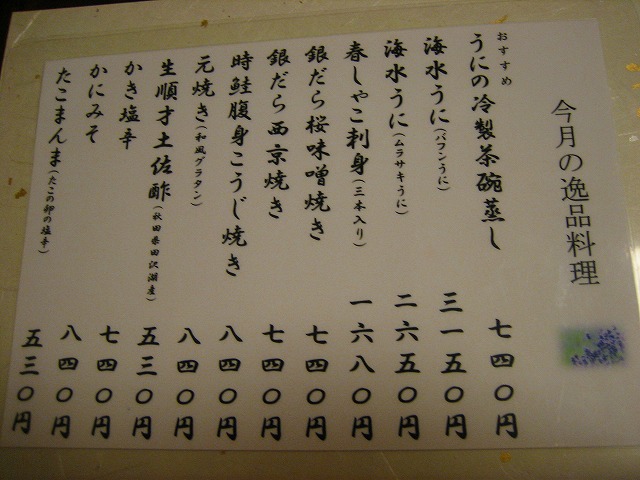 今月の逸品料理
おすすめ
うにの冷製茶碗蒸し 七四〇円
海水うに(バフンうに) 三一五〇円
海水うに(ムラサキうに) 二六五〇円
春しゃこ刺身(三本入り) 一六八〇円
銀だら桜味噌焼き 七四〇円
銀だら西京焼き 七四〇円
時鮭腹身こうじ焼き 八四〇円
元焼き(和風グラタン) 八四〇円
生順才土佐酢(秋田県田沢湖産) 五三〇円
かき塩辛 七四〇円
かにみそ 八四〇円
たこまんま(たこの卵の塩辛) 五三〇円